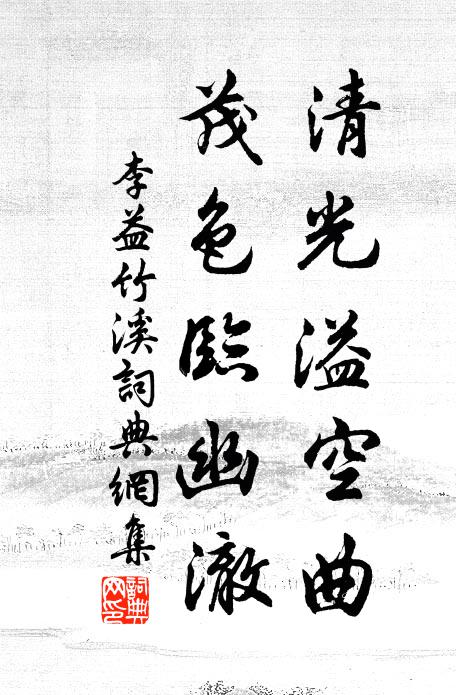 清光溢空曲
茂色臨幽澈
李益竹溪詞典網集
詞典网印